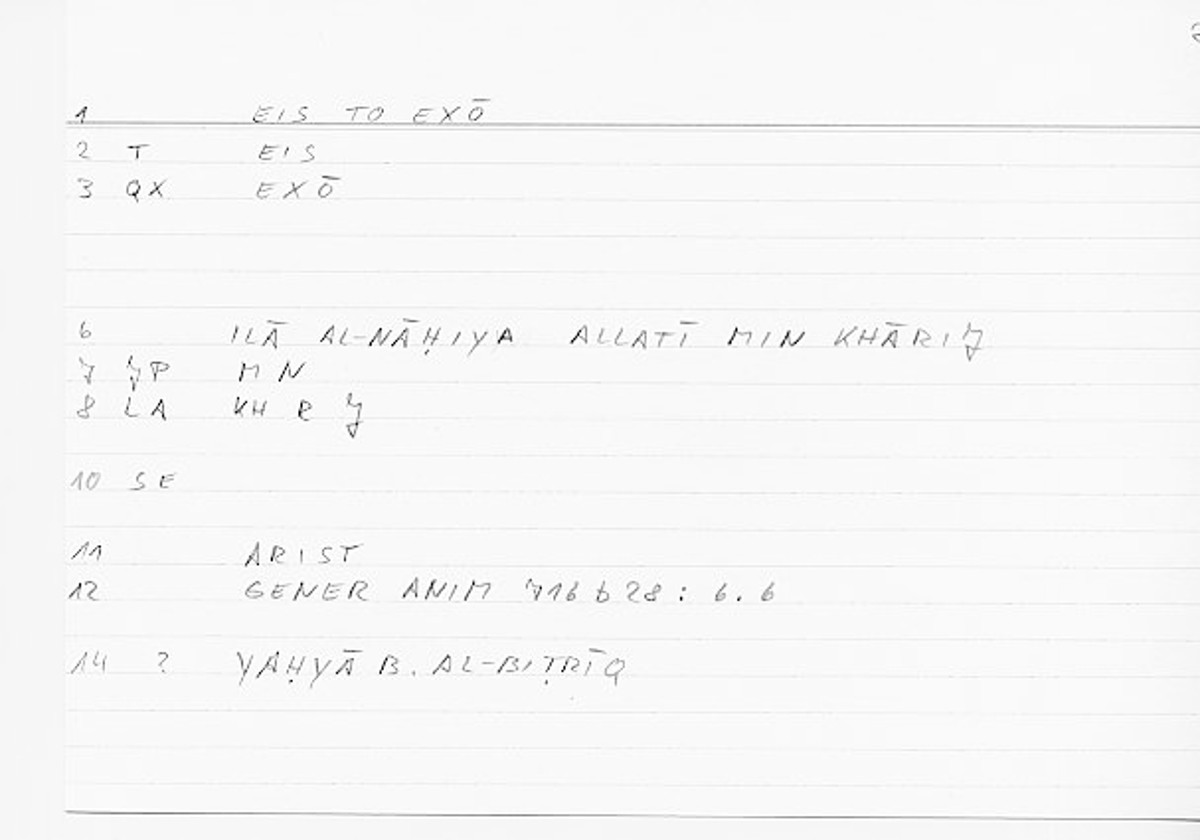 1 EIS TO EXŌ
2 T EIS
3 QX EXŌ
6 ILĀ AL-NĀḤIYA ALLATĪ MIN KHĀRIJ
7 JP MN
8 LA KH R J
10 SE
11 ARIST
12 GENER ANIM 716 b 28 : 6.6
14 ? YAḤYĀ B. AL-BIṬRĪQ